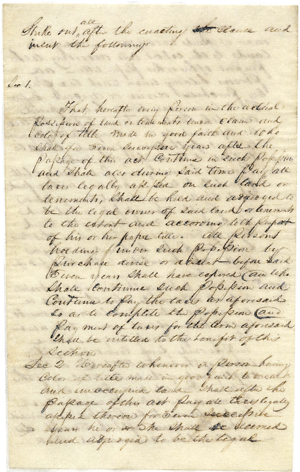 all
Strike out after the enacting clause and
insert the following
Sec 1.
That hereafter every person in the actual
possession of land or tenements under claim and
color of title made in good faith and who
shall for seven successive years after the
passage of this act continue in such possession
and shall also during said time pay all
taxes legally assessed on such land or
tenements shall be held and adjudged to
be the legal owner of said land or tenements
to the extent and according to the purport
of his or her paper title. All persons
holding under such possession by
purchase devise or descent before said
Seven years shall have expired and who
shall continue such possession and
continue to pay the taxes as aforesaid
so as to complete the possession and
payment of taxes for the term aforesaid
shall be entitled to the benefit of this
Section
Sec 2 Hereafter whenever a person having
color of title made in good faith to vacant
and unoccupied land shall after the
passage of this act pay all taxes legally
assessed thereon for seven successive
years he or she shall be deemed
and adjudged to be the legal